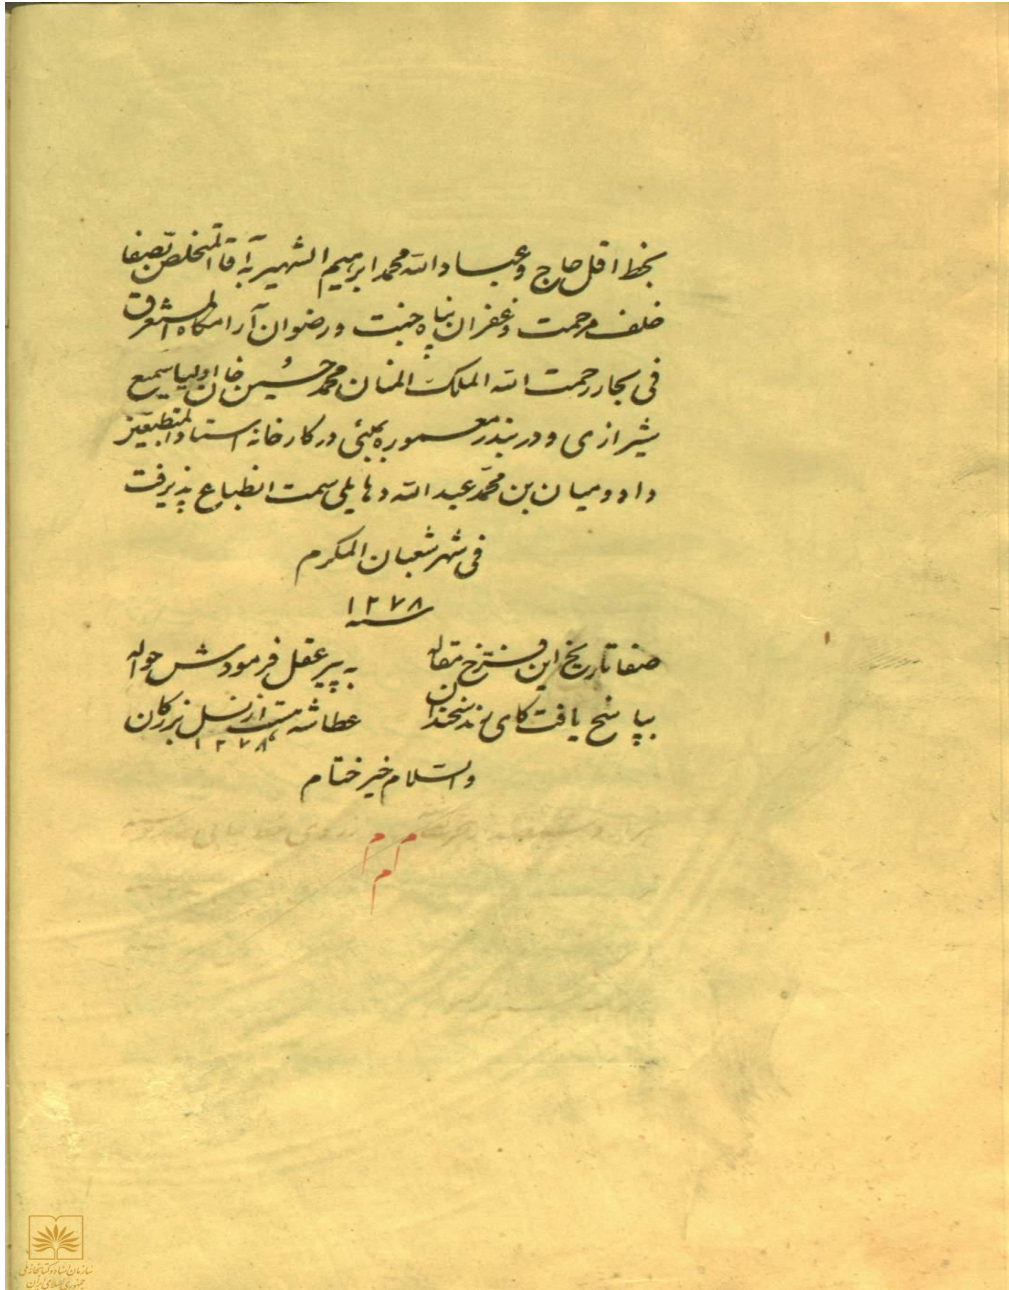 بخط اقل حاج و عباد الله محمد ابرهیم الشهیر به آقا المتخلص بصفا
خلف مرحمت و غفران پناه جنت و رضوان آرامگاه المستغرق
فی بحار رحمت الله الملک المنان محمد حسین خان اولیا سمیع
شیرازی و در بندر معموره بمبئی در کارخانه استاد المنطبعین
داود میان بن محمد عبد الله دهایلی سمت انطباع پذیرفت
فی شهر شعبان المکرم
سنه ۱۲۷۸
صفا تاریخ این فرخ مقاله
به پیر عقل فرمودش حواله
بپاسخ یافت کای رند سخندان
عطا شد از نسل بزرگان
۱۲۷۸
والسلام خیر ختام
م م
م
سازمان اسناد و کتابخانه ملی
جمهوری اسلامی ایران